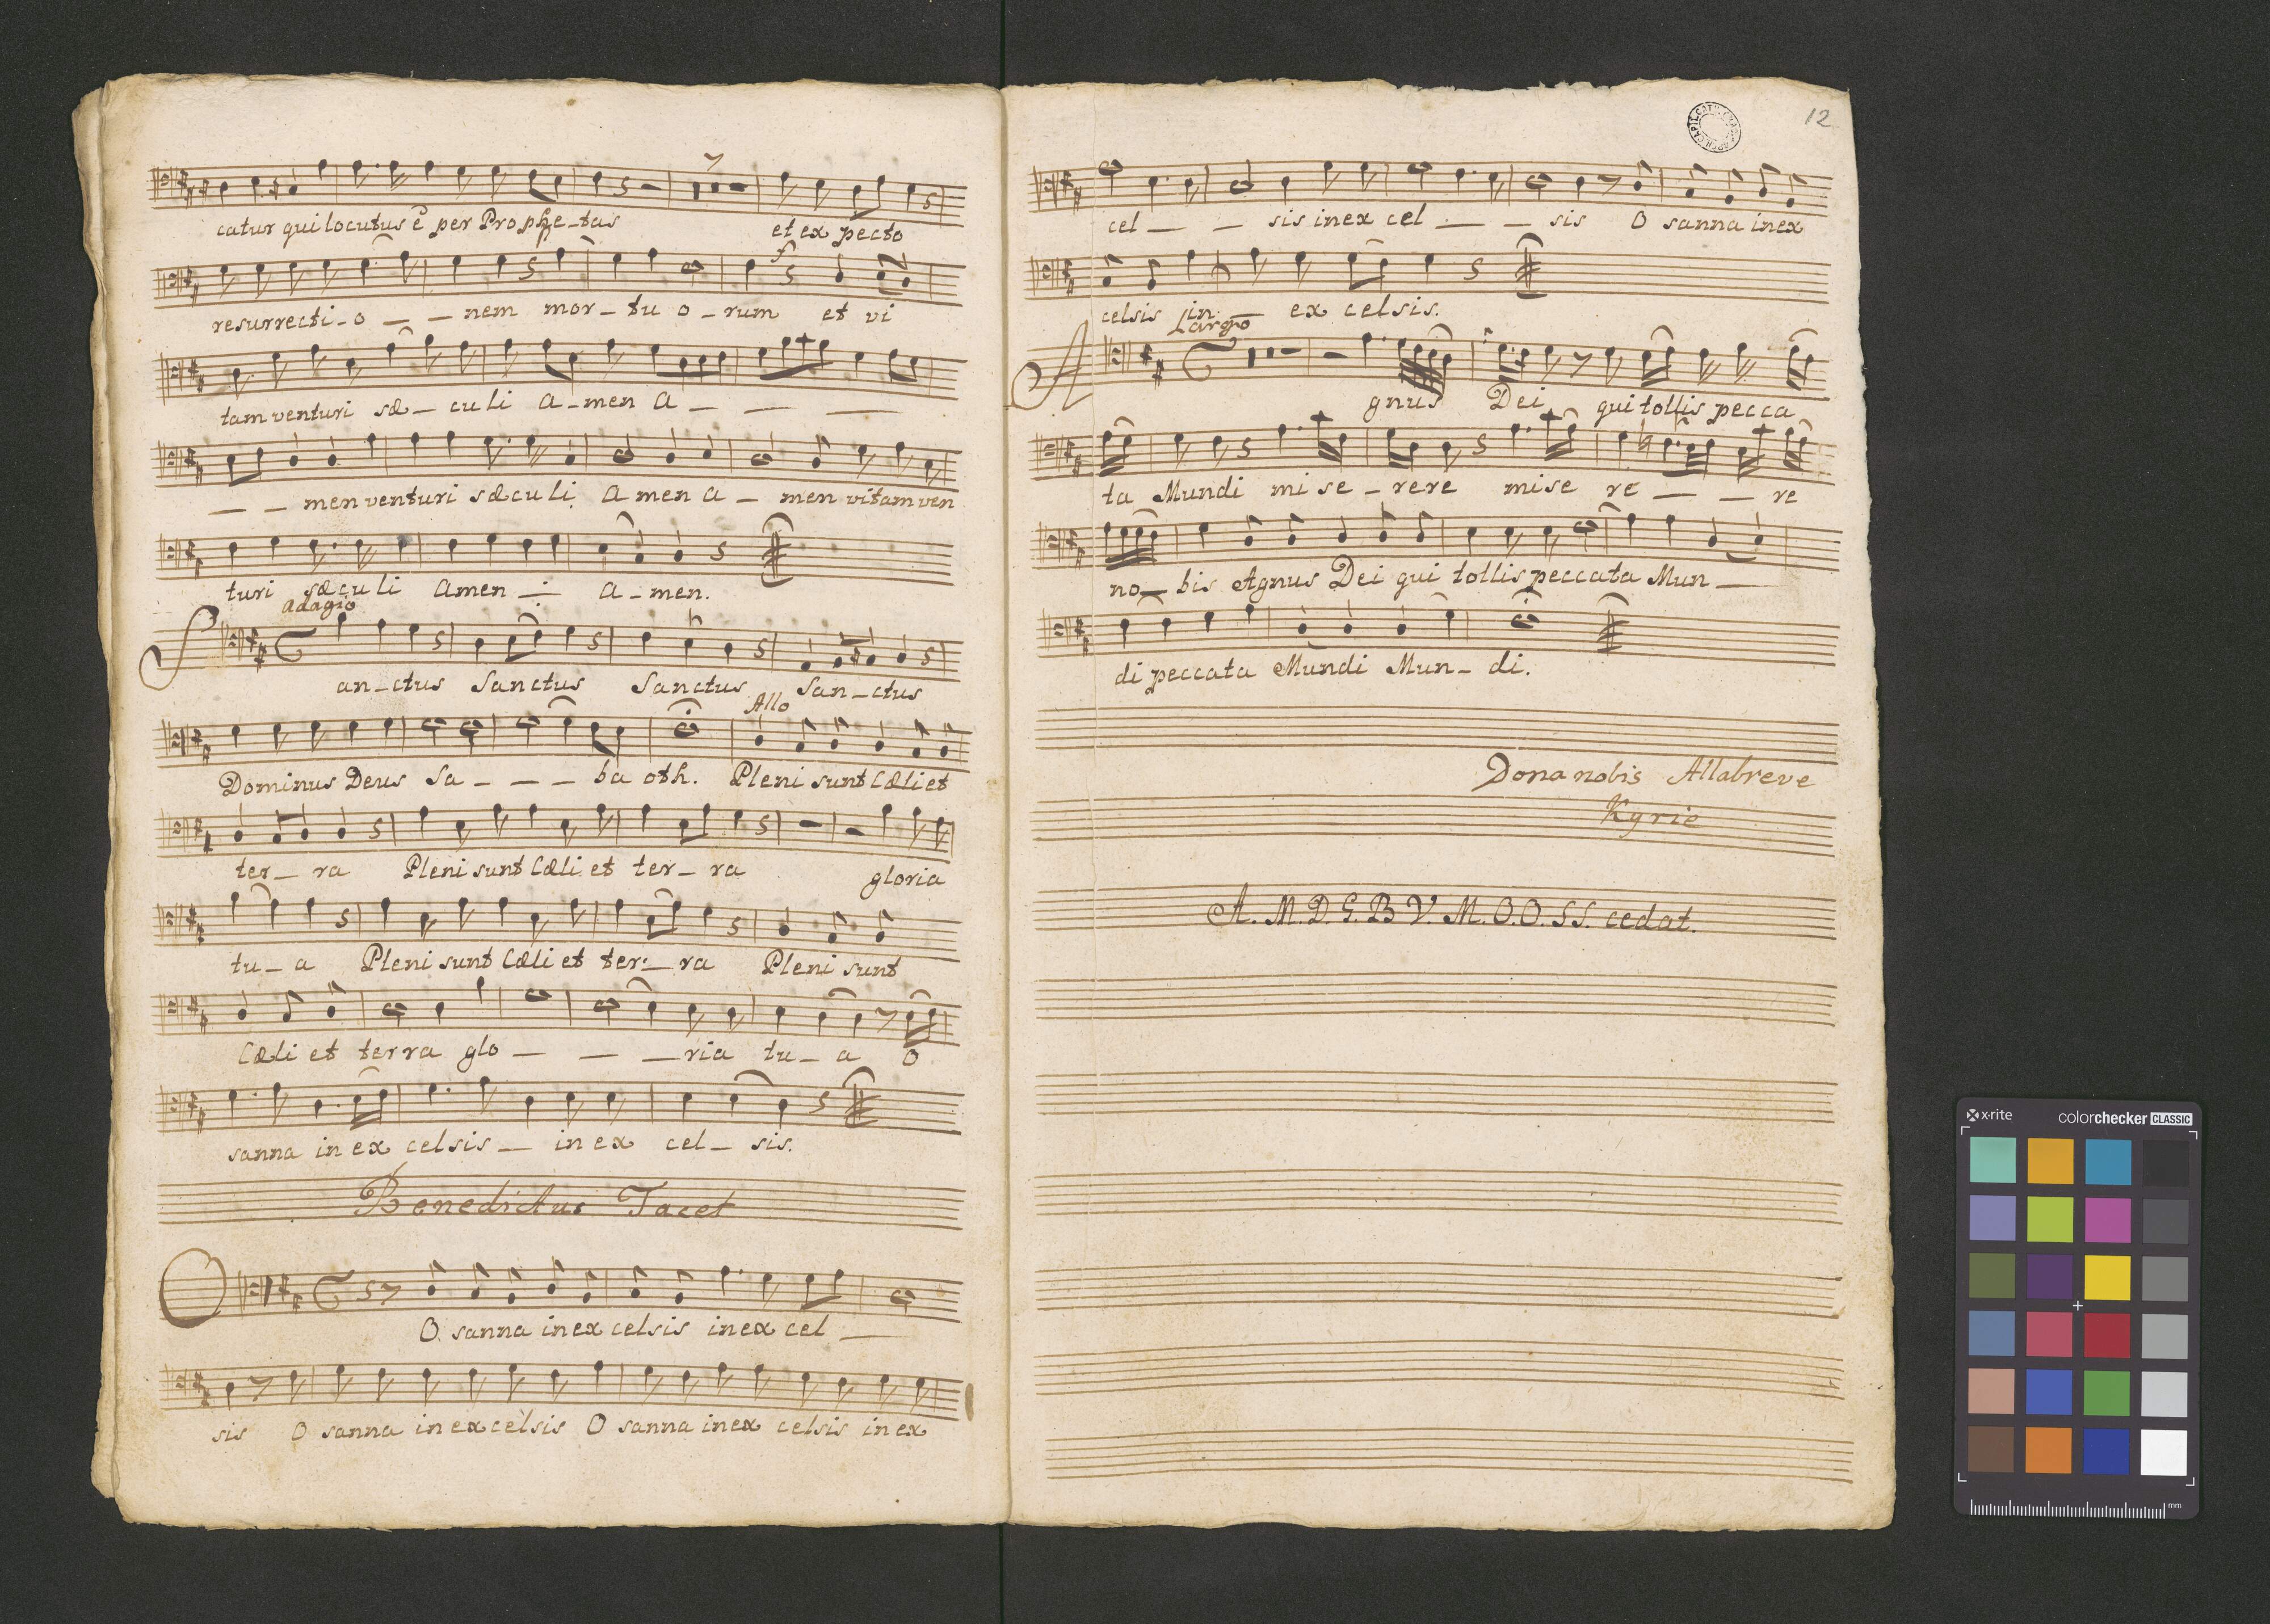 catur qui locutus ẽ per Prophe_tas et ex pecto
resurrecti_o _ _ nem mor_tu o_rum et vi
tam venturi sæ_culi A_men A _ _ _
_ _ men venturi sæculi A men A _ men vitam ven
turi sæculi Amen _ A_men.
Adagio
San_ctus Sanctus Sanctus San_ctus
Allo
Dominus Deus Sa _ _ _ ba oth. Pleni sunt Cæli et
ter_ra Pleni sunt Cæli et ter_ra gloria
tu_a Pleni sunt Cæli et ter_ra Pleni sunt
Cæli et terra glo _ _ _ ria tu_a O
sanna in ex celsis _ in ex cel_sis.
Benedictus Tacet
O O sanna in ex celsis in ex cel _
sis O sanna in ex celsis O sanna in ex celsis in ex
12
cel _ _ sis in ex cel _ _ sis O sanna in ex
celsis in _ ex celsis.
Largo
A gnus Dei qui tollis pecca
ta Mundi mi se_rere mise re _ _ re
no_bis Agnus Dei qui tollis peccata Mun _
di peccata Mundi Mun_di.
Dona nobis Allabreve
Kyrie
A. M. D. G. B V. M. O. O. SS. cedat.
x-rite colorchecker CLASSIC
mm